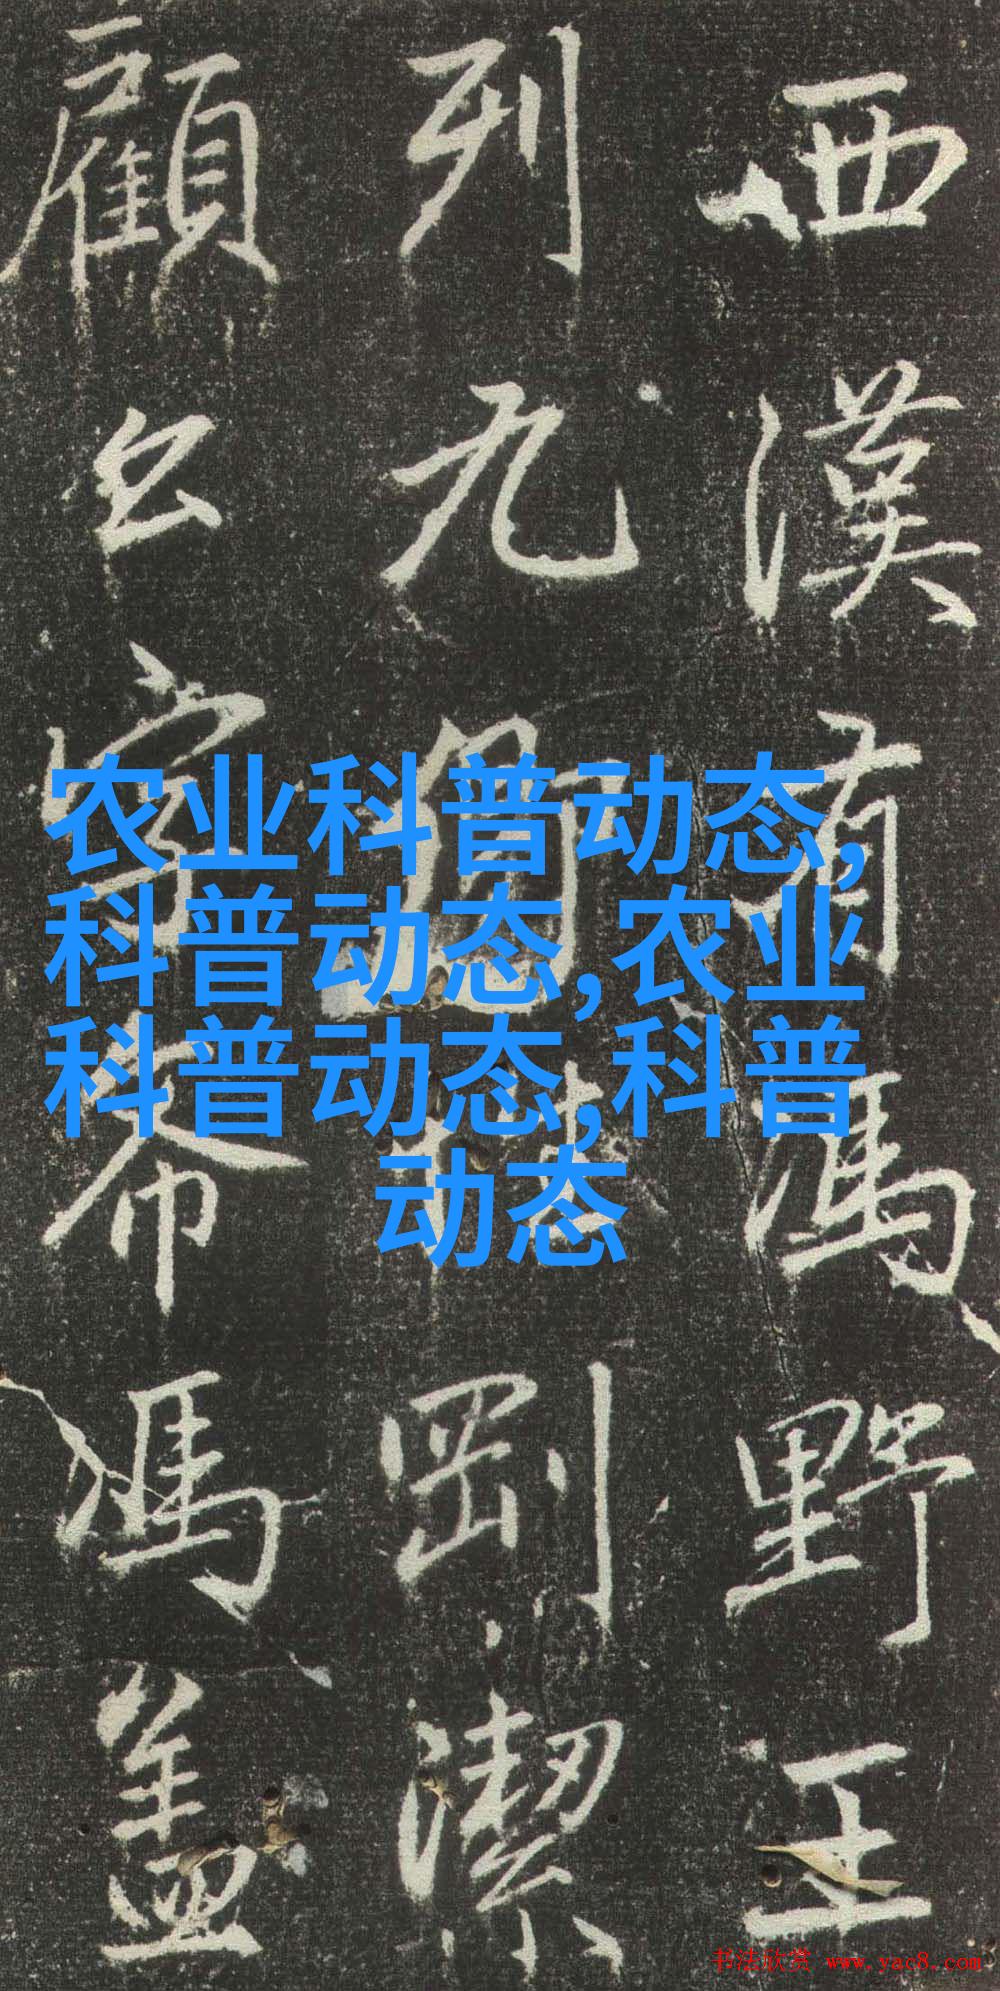 农业科普动态,
科普动态,农业
科普动态,科普
动态
西漢有馮野王
列九剛潔
顧公字希馮蓋
书法欣赏 www.yac8.com